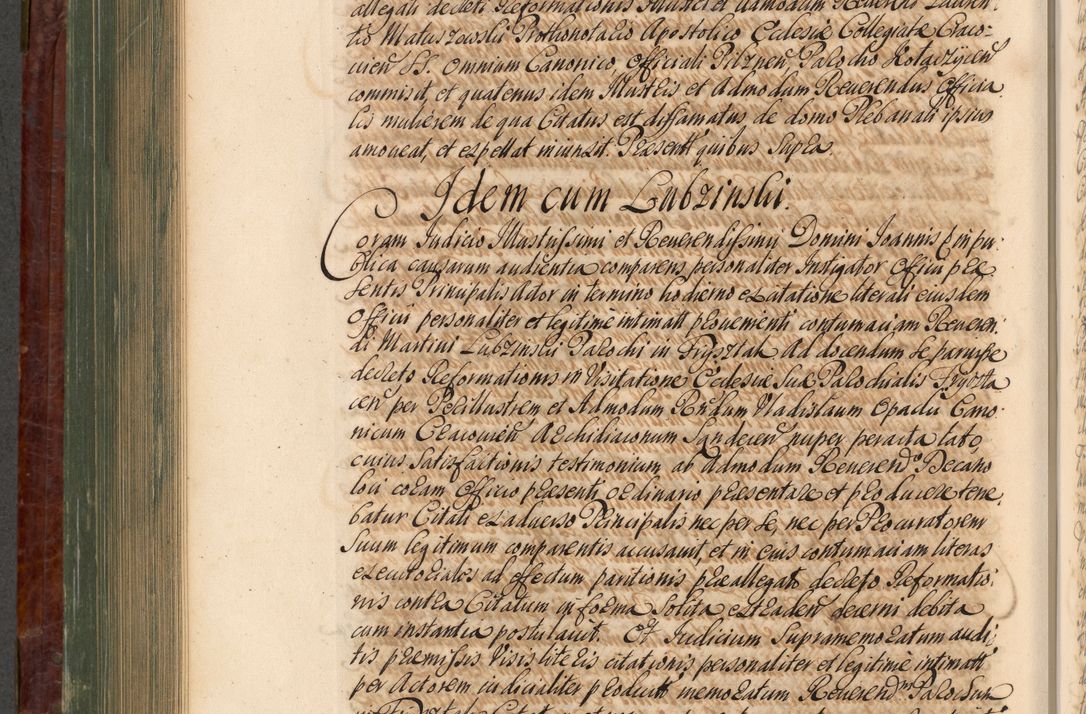 allegati decreti Reformationis Illustri et Admodum Reverendo Lauren:
tio Matuszowski Prothonotario Apostolico Ecclesiæ Collegiatæ Craco:
vien SS. Omnium Canonico, Officiali Pilznen, Parocho Kołaczycen
commisit, et quatenus idem Illustris et Admodum Reverendus Officia
lis mulierem de qua Citatus est diffamatus de domo Plebanali ipsius
amoveat, et expellat iniunxit. Præsentt quibus Supra.
Idem cum Lubzinski.
Coram Judicio Illustrissimi et Reverendissimi Domini Joannis in pu:
blica causarum audientia comparens personaliter Instigator Officii præ
sentis Principalis Actor in termino hodierno ex citatione literali eiusdem
Officii personaliter et legitime intimatt provenienti contumaciam Reveren:
di Martini Lubzinski Parochi in Frysztak Ad docendum se paruisse
decreto Reformationis in Visitatione Ecclesiæ Suæ Parochialis Frysta
cen per Perillustrem et Admodum Rndum Vladislaum Opacki Cano:
nicum Cracovien Archidiaconum Sandecen nuper peracta lato,
cuius Satisfactionis testimonium ab Admodum Reverendo Decano
loci coram Officio præsenti ordinario præsentare et producere tene
batur Citati ex adverso Principalis nec per se, nec per Procuratorem
Suum legitimum comparentis accusavit, et in eius contumaciam literas
executoriales ad effectum paritionis præallegato decreto Reformatio:
nis contra Citatum in forma Solita extraden decerni debita
cum instantia postulavit. Et Judicium Supramemoratum audi:
tis præmissis Visis literis citationis personaliter et legitime intimatt
per Actorem iudicialiter productt memoratum Reverendm Parochum